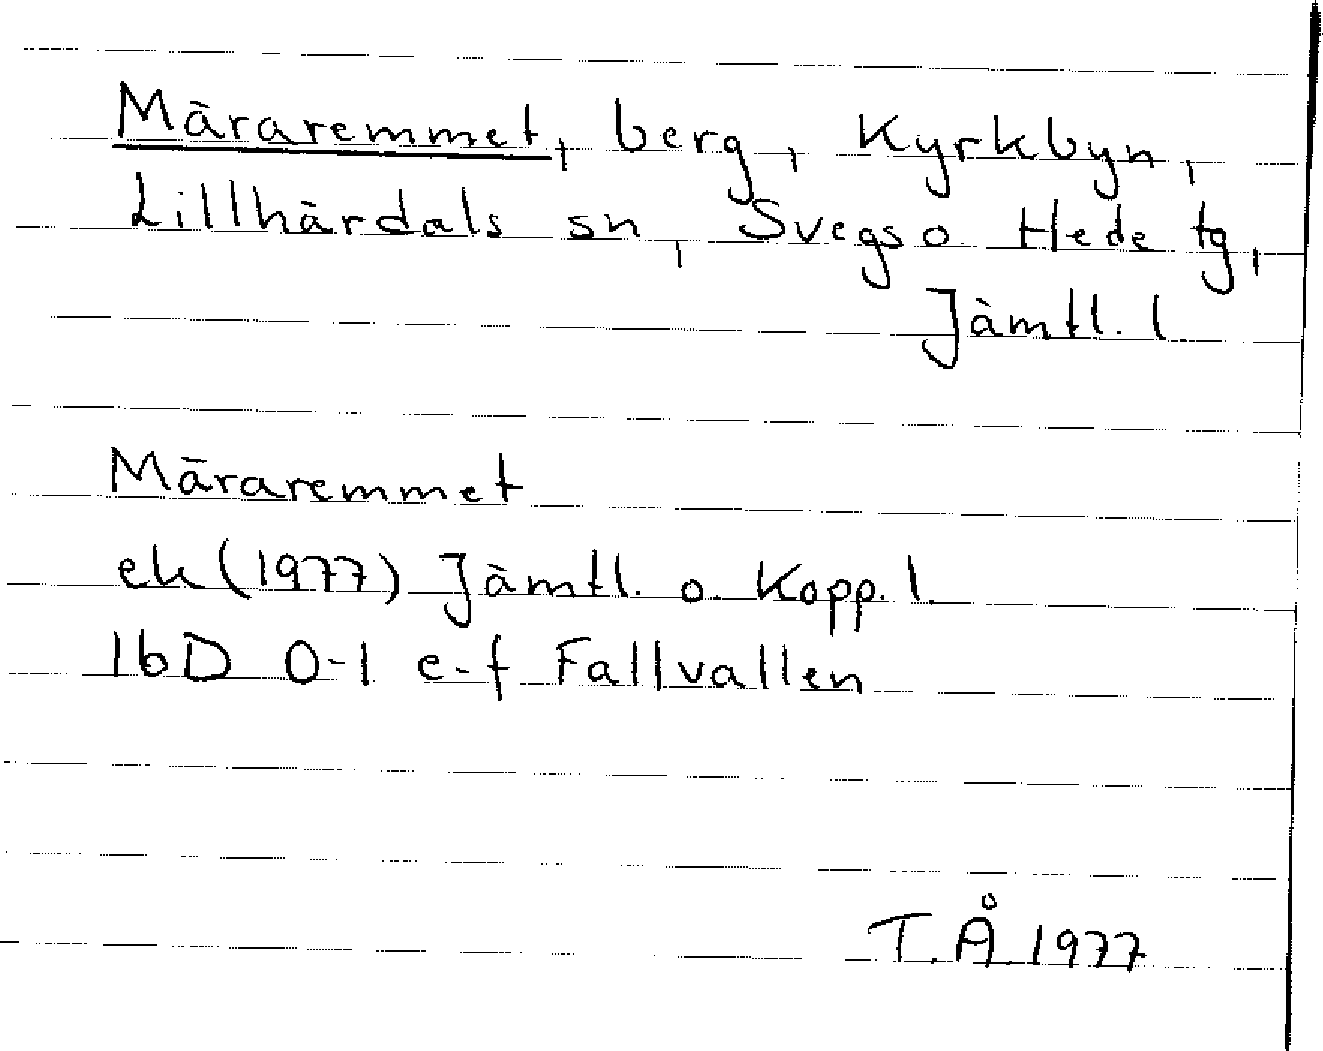 Märaremmet, berg, Kyrkbyn,
Lillhärdals sn, Svegs o Hede tg,
Jämtl. l
Märaremmet
ek (1977) Jämtl. o. Kopp. l.
16D 0-1 e-f Fallvallen
T.Å. 1977